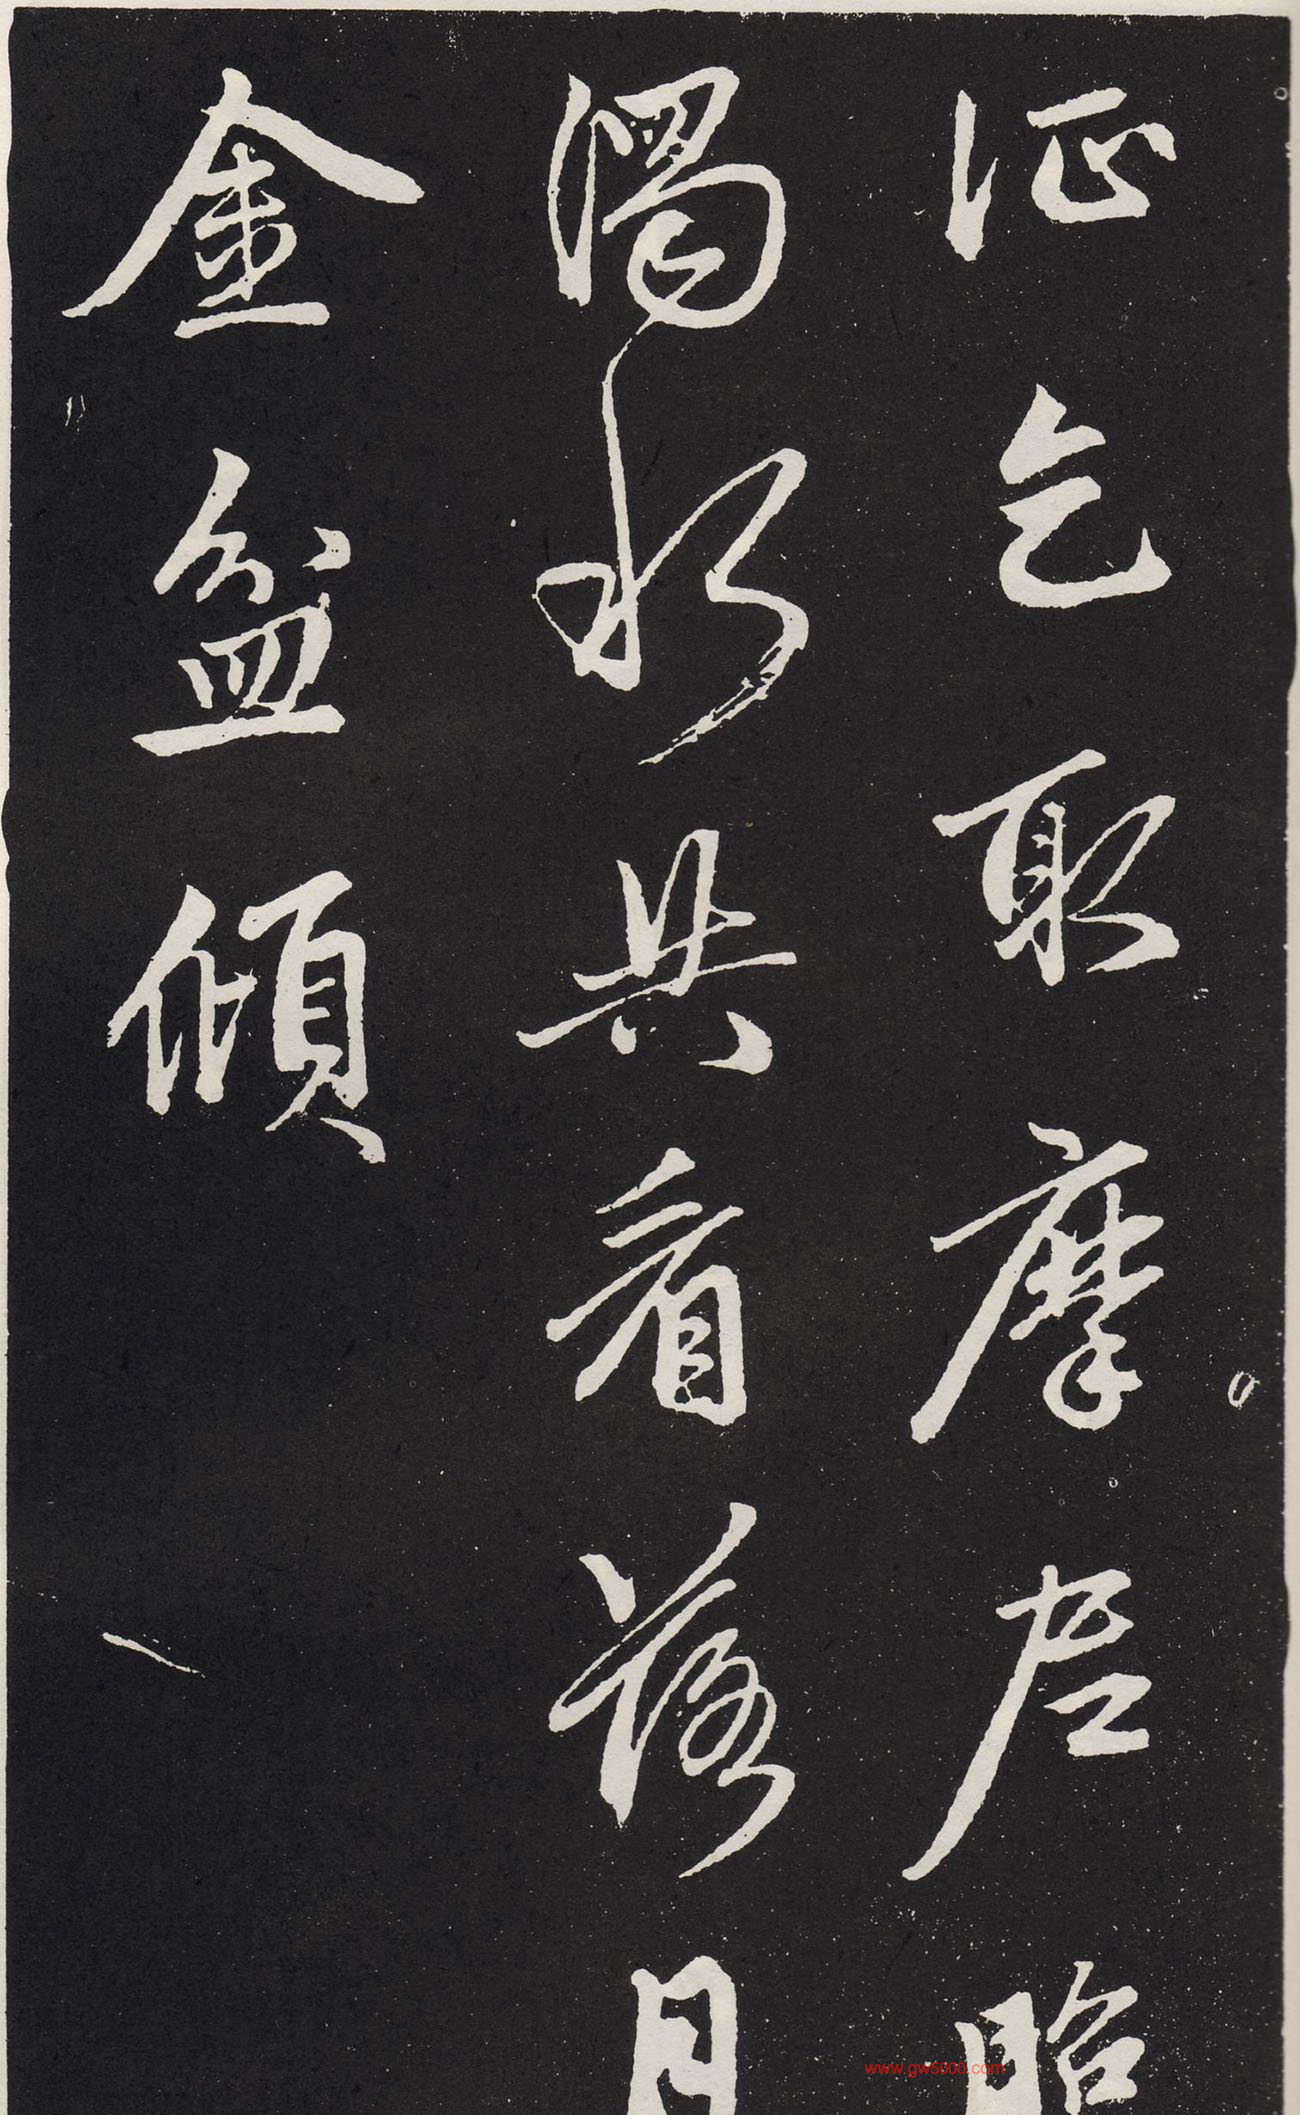 乞取摩尼照
濁水共看落月
金盆傾
www.gw5000.com